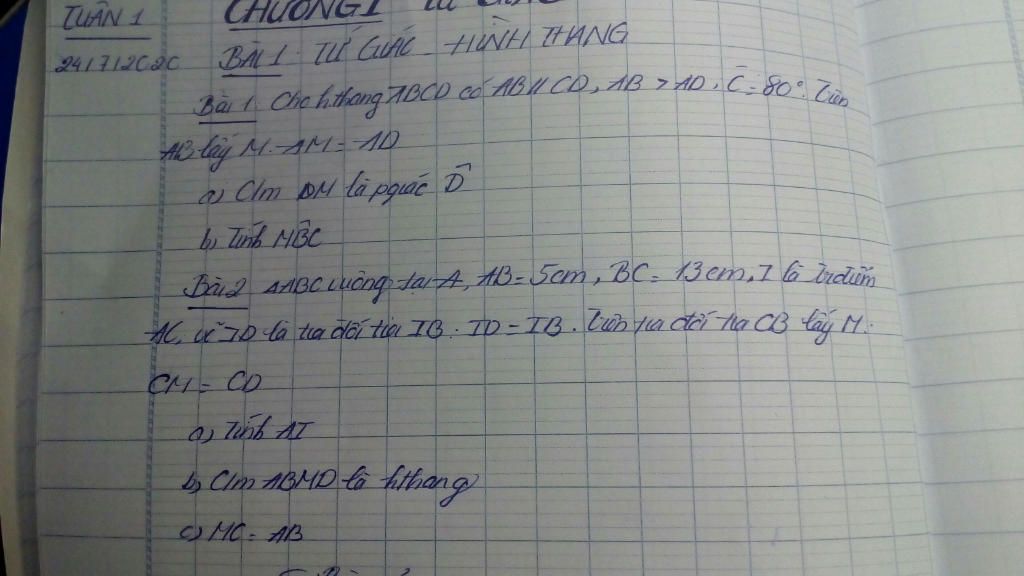 TUẦN 1 CHƯƠNG I
24/7/2020 BÀI 1: TỨ GIÁC HÌNH THANG
Bài 1: Cho hthang ABCD có AB // CD, AB > AD, Ĉ = 80°. Trên
AB lấy M: AM = AD
a) C/m DM là pgiác D̂
b) Tính MB̂C
Bài 2 ΔABC vuông tại A, AB = 5cm, BC = 13cm, I là trđiểm
AC, vẽ ID là tia đối tia IB: ID = IB. Trên tia đối tia CB lấy M:
CM = CD
a) Tính AI
b) C/m ABMD là hthang
c) MC = AB